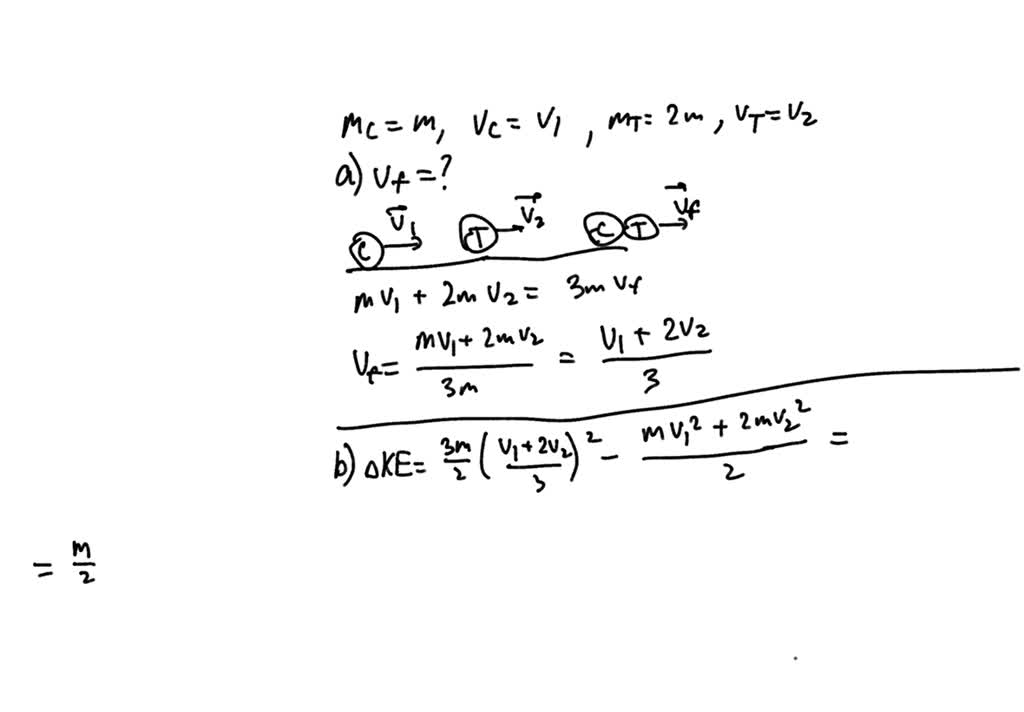 m_C = m, V_C = V_1, m_T = 2m, V_T = V_2
a) V_f = ?
C V⃗_1 T V⃗_2 C T V⃗_f
mV_1 + 2mV_2 = 3mV_f
V_f = (mV_1 + 2mV_2)/(3m) = (V_1 + 2V_2)/3
b) ΔKE = 3m/2 ((V_1 + 2V_2)/3)^2 - (mV_1^2 + 2mV_2^2)/2 =
= m/2